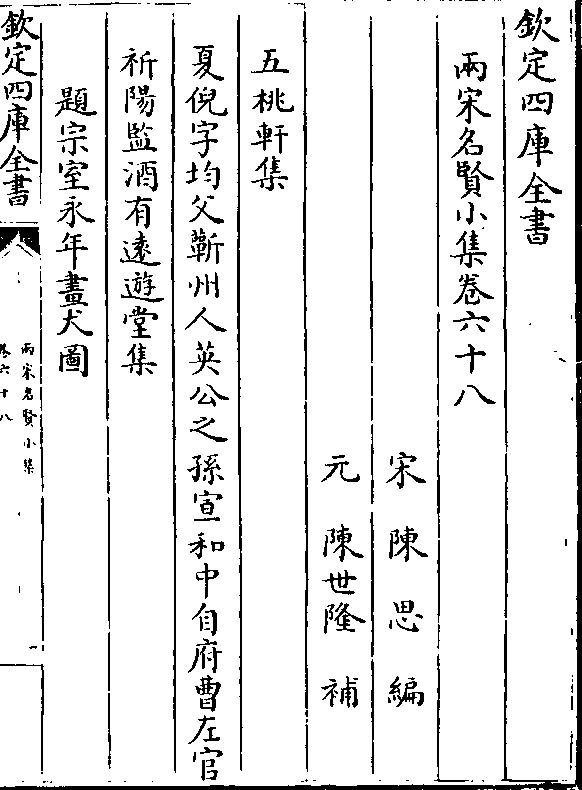 欽定四庫全書
兩宋名賢小集卷六十八
宋陳思編
元陳世隆補
五桃軒集
夏倪字均父蘄州人英公之孫宣和中自府曹左官
祈陽監酒有逺遊堂集
題宗室永年畫犬圖
欽定四庫全書
兩宋名賢小集
卷六十八